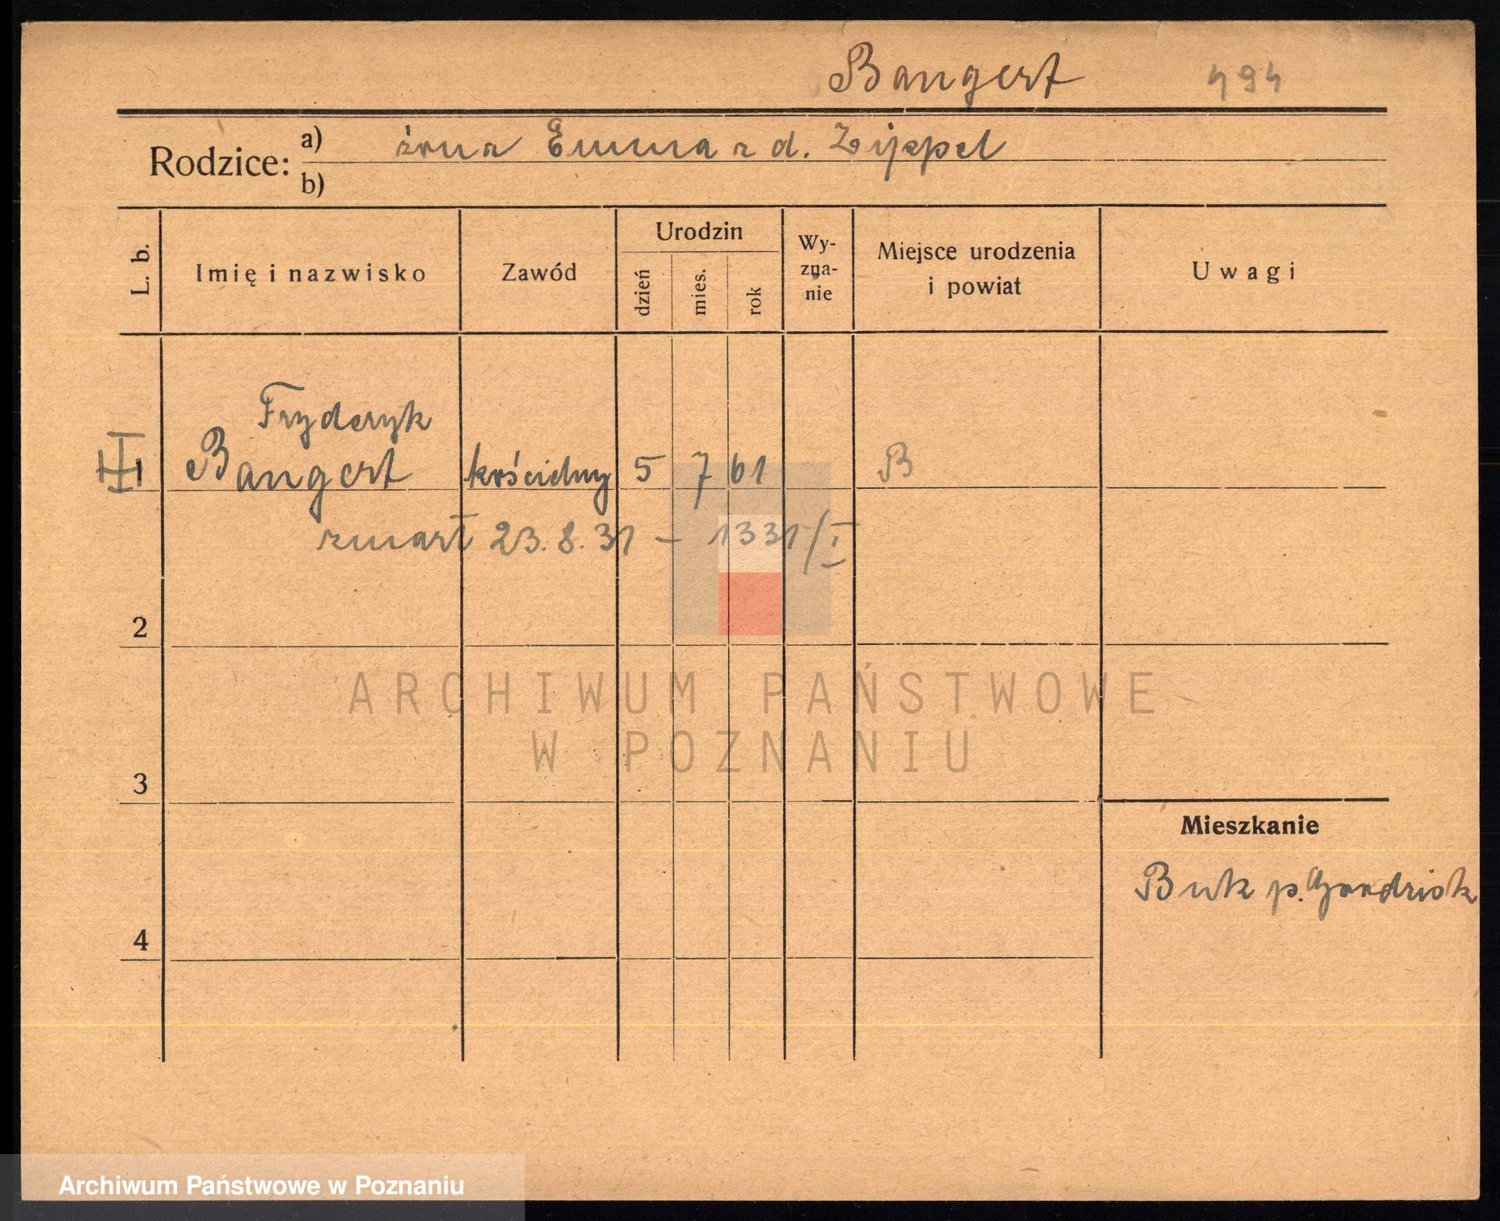 Bangert 494
Rodzice: a) żona Emma z d. Zippel
b)
L. b. Imię i nazwisko Zawód Urodzin dzień mies. rok Wyznanie Miejsce urodzenia i powiat Uwagi
Fryderyk
1 Bangert kościelny 5 7 61 B
zmarł 23.8.31 – 1331/I
2
ARCHIWUM PAŃSTWOWE
W POZNANIU
3
Mieszkanie
Buk p.
4
Archiwum Państwowe w Poznaniu